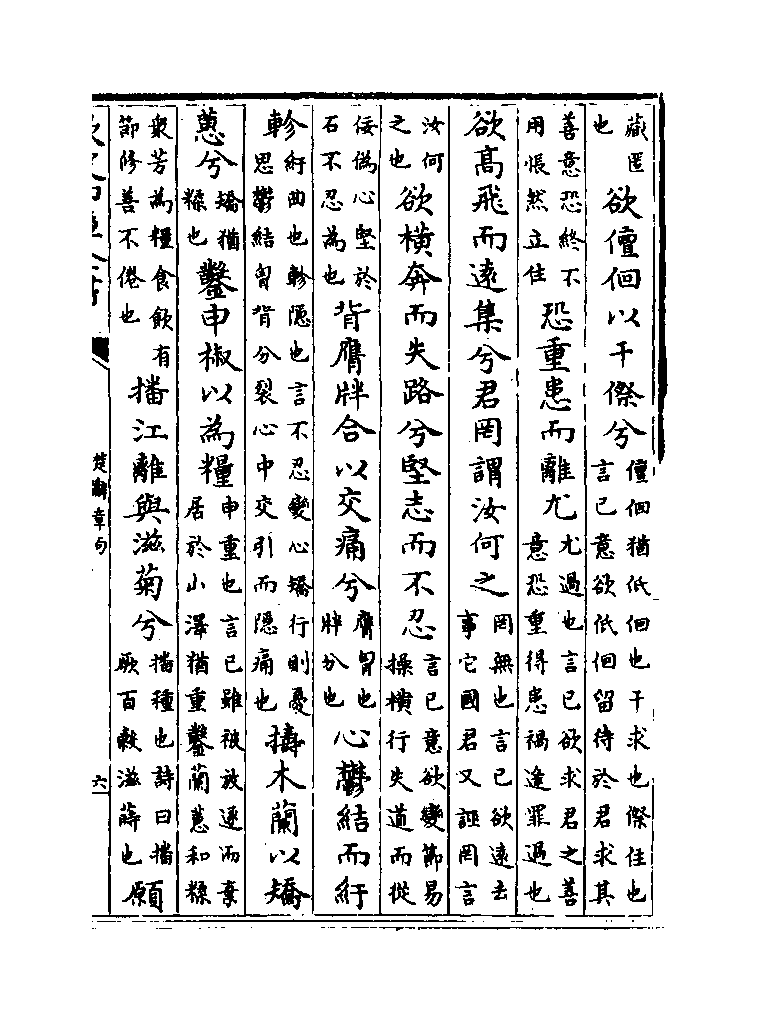 藏匿也欲儃佪以干傺兮儃佪猶低佪也干求也傺住也言已意欲低佪留待於君求其
善意恐終不用悵然立住恐重患而離尤尤過也言已欲求君之善意恐重得患禍逢罪過也
欲高飛而遠集兮君罔謂汝何之罔無也言已欲遠去事它國君又誣罔言
汝何之也欲橫奔而失路兮堅志而不忍言已意欲變節易操橫行失道而從
佞偽心堅於石不忍為也背膺牉合以交痛兮膺胷也牉分也心鬱結而紆
軫紆曲也軫隱也言不忍變心矯行則憂思鬱結胷背分裂心中交引而隱痛也擣木蘭以矯
蕙兮矯猶糅也鑿申椒以為糧申重也言已雖被放逐而棄居於小澤猶重鑿蘭蕙和糅
衆芳為糧食飲有節修善不倦也播江離與滋菊兮播種也詩曰播厥百穀滋蒔也願
楚辭章句
六